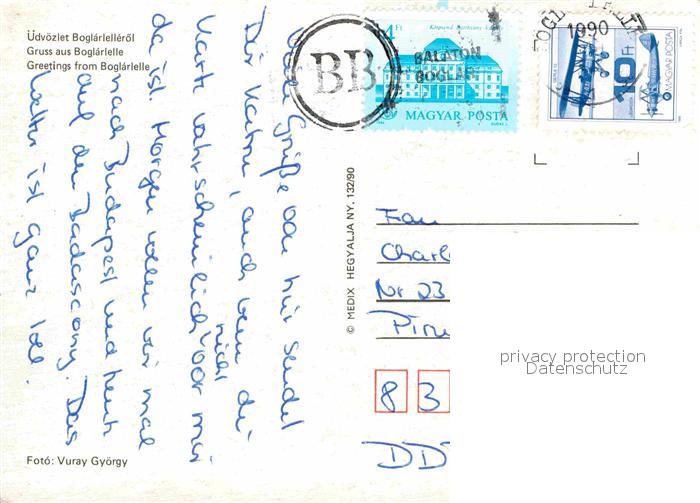 Üdvözlet Boglárlelléről
Gruss aus Boglárlelle
Greetings from Boglárlelle
Viele Grüße von hier sendet
Dir Katrin, auch wenn die
Karte wahrscheinlich nicht vor mir
da ist. Morgen wollen wir mal
nach Budapest und heute
auf den Badascony. Das
Wetter ist ganz toll.
Fotó: Vuray György
© MEDIX HEGYALJA NY. 132/90
BB
4Ft
MAGYAR POSTA
BALATON
BOGLÁR
1990
10 Ft
MAGYAR POSTA
Frau
Charl
Nr 23
Pirn
8 3
DD
privacy protection
Datenschutz